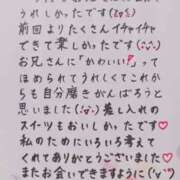 うれしかったです(≧◡≦)
前回よりたくさんイチャイチャ
できて楽しかったです(◡‿◡)
お兄さんに「かわいい❤」って
ほめられてうれしくてこれか
らも自分磨きがんばろうと
思いました(๑'ᴗ'๑) 差し入れの
スイーツもおいしかった♡
私のためにいろいろ考えて
くれてありがとうございました♡
またお会いできますように(*'▽'*)